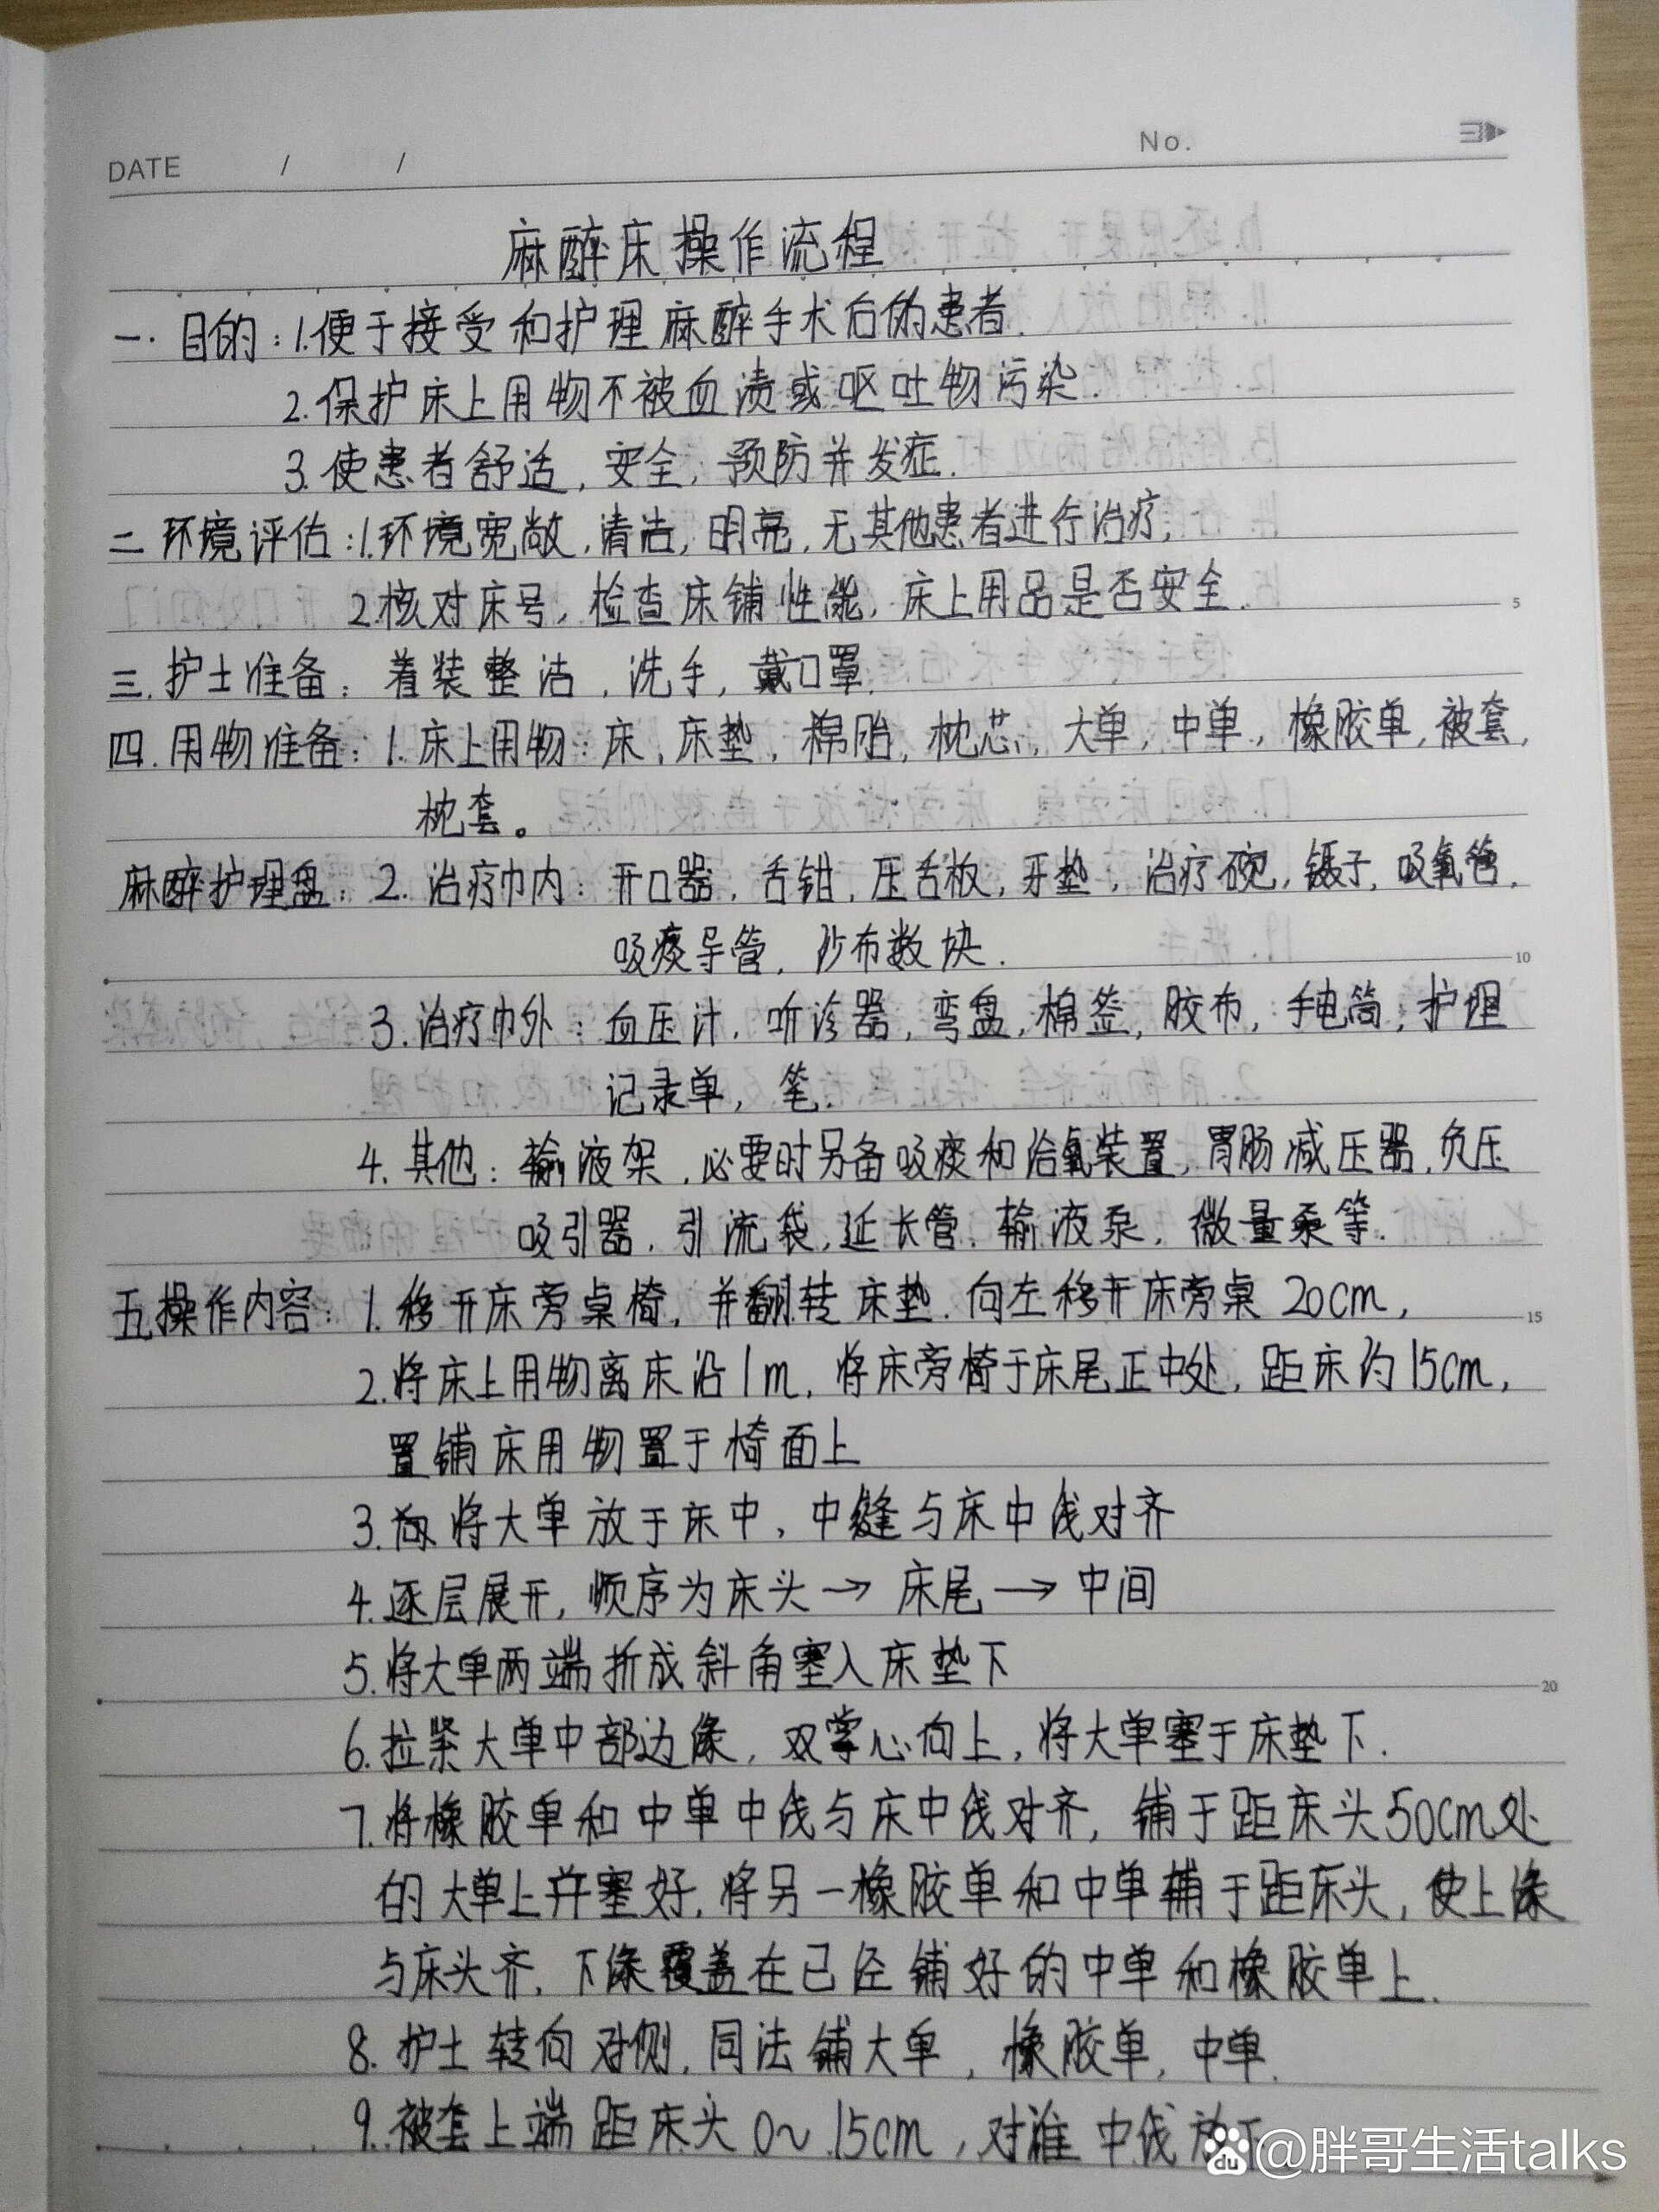 DATE / /
No.
麻醉床操作流程
一. 目的：1.便于接受和护理麻醉手术后的患者.
2.保护床上用物不被血渍或呕吐物污染.
3.使患者舒适，安全，预防并发症.
二 环境评估：1.环境宽敞，清洁，明亮，无其他患者进行治疗，
2.核对床号，检查床铺性能，床上用品是否安全.
三. 护士准备：着装整洁，洗手，戴口罩.
四. 用物准备：1.床上用物：床，床垫，棉胎，枕芯，大单，中单，橡胶单，被套，
枕套。
麻醉护理盘：2. 治疗巾内：开口器，舌钳，压舌板，牙垫，治疗碗，镊子，吸氧管，
5
吸痰导管，纱布数块.
10
3.治疗巾外：血压计，听诊器，弯盘，棉签，胶布，手电筒，护理
记录单，笔.
4.其他：输液架，必要时另备吸痰和给氧装置，胃肠减压器，负压
吸引器，引流袋，延长管，输液泵，微量泵等.
五.操作内容：1.移开床旁桌椅，并翻转床垫.向左移开床旁桌20cm，
15
2.将床上用物离床沿1m，将床旁椅于床尾正中处，距床约15cm，
置铺床用物置于椅面上
3. 将大单放于床中，中缝与床中线对齐
4.逐层展开，顺序为床头→床尾→中间
5.将大单两端折成斜角塞入床垫下
20
6.拉紧大单中部边缘，双掌心向上，将大单塞于床垫下.
7.将橡胶单和中单中线与床中线对齐，铺于距床头50cm处
的大单上并塞好，将另一橡胶单和中单铺于距床头，使上缘
与床头齐，下缘覆盖在已经铺好的中单和橡胶单上.
8.护士转向对侧，同法铺大单，橡胶单，中单.
9.被套上端距床头0～15cm，对准中线放
du @胖哥生活talks